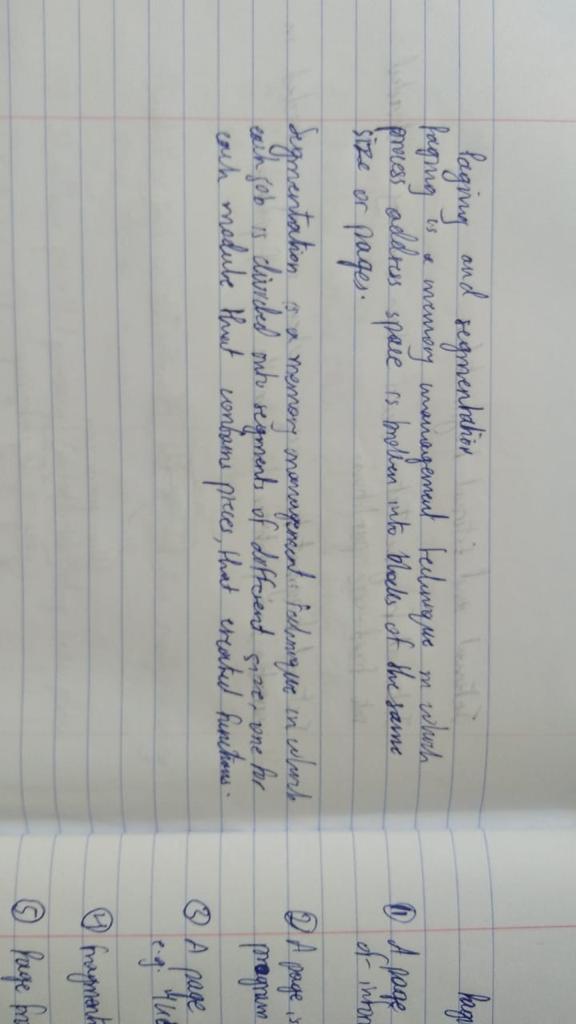 Paging and segmentation
Paging is a memory management technique in which
process address space is broken into blocks of the same
size or pages.
Segmentation is a memory management technique in which
each job is divided into segments of different size, one for
each module that contains pieces, that created functions.
① A page
of
② A page is
program
③ A page
e.g.
④
⑤ Page